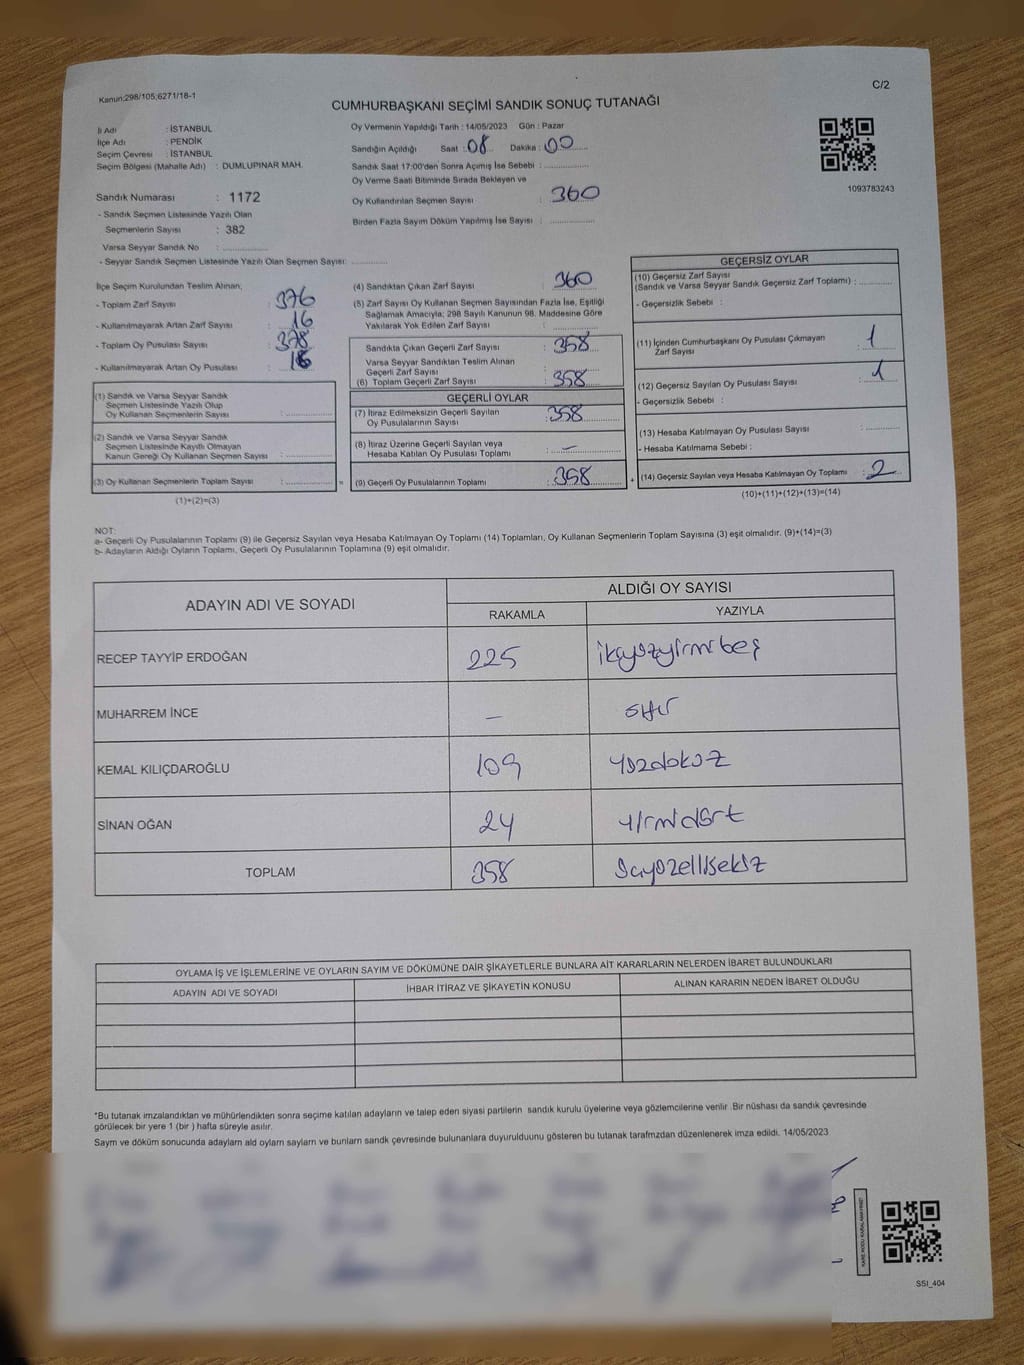 Kanun:298/105;6271/18-1
C/2
CUMHURBAŞKANI SEÇİMİ SANDIK SONUÇ TUTANAĞI
İl Adı : İSTANBUL
İlçe Adı : PENDİK
Seçim Çevresi : İSTANBUL
Seçim Bölgesi (Mahalle Adı) : DUMLUPINAR MAH.
Oy Vermenin Yapıldığı Tarih : 14/05/2023 Gün : Pazar
Sandığın Açıldığı Saat : 08 Dakika : 00
Sandık Saat 17:00'den Sonra Açımış İse Sebebi :
Oy Verme Saati Bitiminde Sırada Bekleyen ve
Oy Kullandırılan Seçmen Sayısı : 360
Birden Fazla Sayım Döküm Yapılmış İse Sayısı :
1093783243
Sandık Numarası : 1172
- Sandık Seçmen Listesinde Yazılı Olan
Seçmenlerin Sayısı : 382
Varsa Seyyar Sandık No :
- Seyyar Sandık Seçmen Listesinde Yazılı Olan Seçmen Sayısı:
İlçe Seçim Kurulundan Teslim Alınan;
- Toplam Zarf Sayısı : 376
- Kullanılmayarak Artan Zarf Sayısı : 16
- Toplam Oy Pusulası Sayısı : 378
- Kullanılmayarak Artan Oy Pusulası :
(1) Sandık ve Varsa Seyyar Sandık
Seçmen Listesinde Yazılı Olup
Oy Kullanan Seçmenlerin Sayısı :
(2) Sandık ve Varsa Seyyar Sandık
Seçmen Listesinde Kayıtlı Olmayan
Kanun Gereği Oy Kullanan Seçmen Sayısı :
(3) Oy Kullanan Seçmenlerin Toplam Sayısı :
(1)+(2)=(3)
(4) Sandıktan Çıkan Zarf Sayısı : 360
(5) Zarf Sayısı Oy Kullanan Seçmen Sayısından Fazla İse, Eşitliği
Sağlamak Amacıyla; 298 Sayılı Kanunun 98. Maddesine Göre
Yakılarak Yok Edilen Zarf Sayısı :
Sandıkta Çıkan Geçerli Zarf Sayısı : 358
Varsa Seyyar Sandıktan Teslim Alınan
Geçerli Zarf Sayısı :
(6) Toplam Geçerli Zarf Sayısı : 358
GEÇERLİ OYLAR
(7) İtiraz Edilmeksizin Geçerli Sayılan
Oy Pusulalarının Sayısı : 358
(8) İtiraz Üzerine Geçerli Sayılan veya
Hesaba Katılan Oy Pusulası Toplamı : —
(9) Geçerli Oy Pusulalarının Toplamı : 358
GEÇERSİZ OYLAR
(10) Geçersiz Zarf Sayısı
(Sandık ve Varsa Seyyar Sandık Geçersiz Zarf Toplamı) :
- Geçersizlik Sebebi :
(11) İçinden Cumhurbaşkanı Oy Pusulası Çıkmayan
Zarf Sayısı : 1
(12) Geçersiz Sayılan Oy Pusulası Sayısı : 1
- Geçersizlik Sebebi :
(13) Hesaba Katılmayan Oy Pusulası Sayısı :
- Hesaba Katılmama Sebebi :
(14) Geçersiz Sayılan veya Hesaba Katılmayan Oy Toplamı : 2
(10)+(11)+(12)+(13)=(14)
NOT:
a- Geçerli Oy Pusulalarının Toplamı (9) ile Geçersiz Sayılan veya Hesaba Katılmayan Oy Toplamı (14) Toplamları, Oy Kullanan Seçmenlerin Toplam Sayısına (3) eşit olmalıdır. (9)+(14)=(3)
b- Adayların Aldığı Oyların Toplamı, Geçerli Oy Pusulalarının Toplamına (9) eşit olmalıdır.
ADAYIN ADI VE SOYADI
ALDIĞI OY SAYISI
RAKAMLA YAZIYLA
RECEP TAYYİP ERDOĞAN 225 ikiyüzyirmibeş
MUHARREM İNCE — sıfır
KEMAL KILIÇDAROĞLU 109 yüzdokuz
SİNAN OĞAN 24 yirmidört
TOPLAM 358 üçyüzellisekiz
OYLAMA İŞ VE İŞLEMLERİNE VE OYLARIN SAYIM VE DÖKÜMÜNE DAİR ŞİKAYETLERLE BUNLARA AİT KARARLARIN NELERDEN İBARET BULUNDUKLARI
ADAYIN ADI VE SOYADI İHBAR İTİRAZ VE ŞİKAYETİN KONUSU ALINAN KARARIN NEDEN İBARET OLDUĞU
*Bu tutanak imzalandıktan ve mühürlendikten sonra seçime katılan adayların ve talep eden siyasi partilerin sandık kurulu üyelerine veya gözlemcilerine verilir .Bir nüshası da sandık çevresinde
görülecek bir yere 1 (bir ) hafta süreyle asılır.
Saym ve döküm sonucunda adaylarn ald oylarn saylarn ve bunlarn sandk çevresinde bulunanlara duyurulduunu gösteren bu tutanak tarafmzdan düzenlenerek imza edildi. 14/05/2023
SSI_404